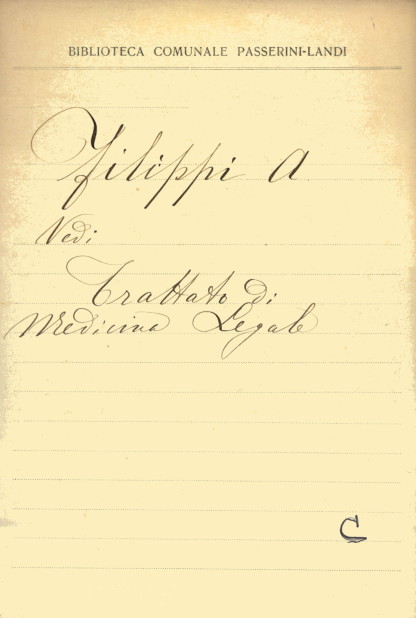 BIBLIOTECA COMUNALE PASSERINI-LANDI
Filippi A
Vedi
Trattato di
Medicina Legale
C